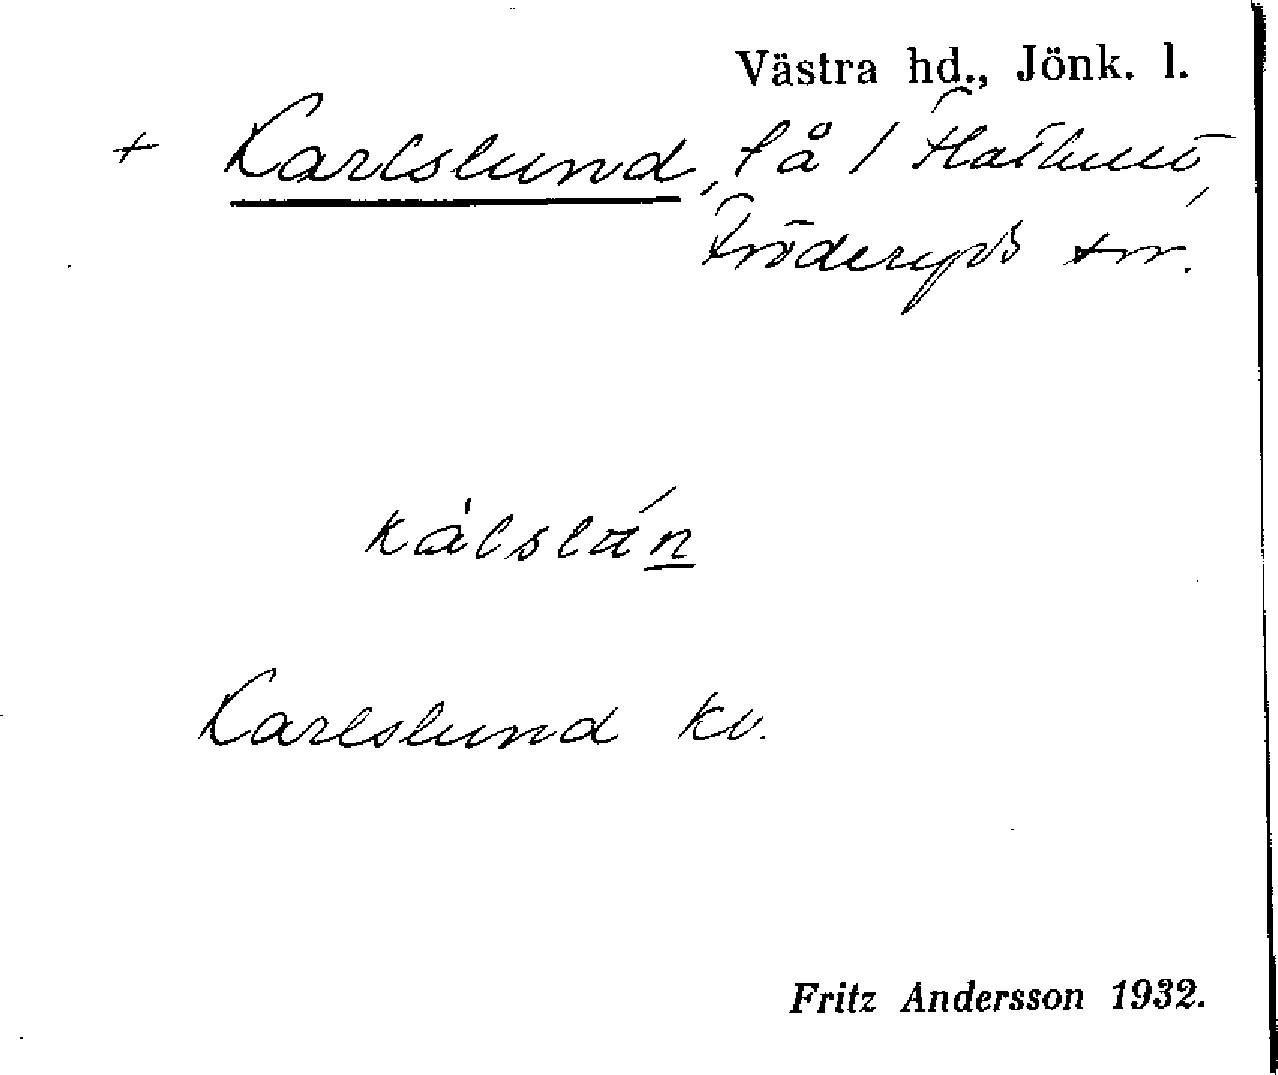 Västra hd., Jönk. l.
+ Karlslund, på / Flathult,
Fröderyds sn.
kàlslán
Karlslund kv.
Fritz Andersson 1932.